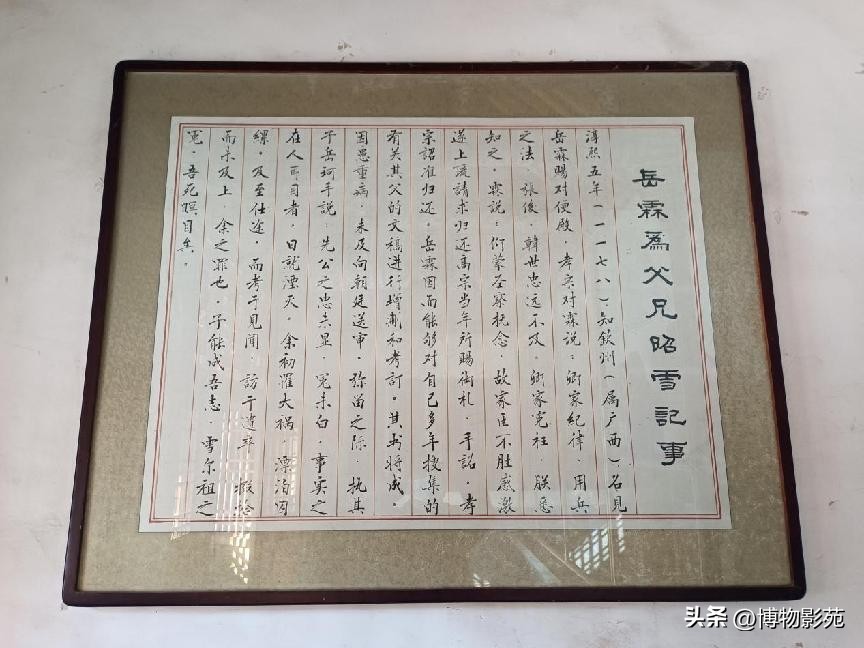 岳霖為父兄昭雪記事
淳熙五年(一一七八)，知欽州(属广西)，召見
岳霖賜对便殿，孝宗对霖说：卿家紀律、用兵
之法，張俊、韓世忠远不及。卿家冤枉，朕悉
知之。霖说：仰蒙圣察抚念，故家臣不胜感激
遂上疏請求归还高宗当年所賜御札、手詔，孝
宗詔准归还。岳霖因而能够对自己多年搜集的
有关其父的文稿进行增删和考訂。其书将成，
因患重病，未及向朝廷送审，弥留之际，执其
子岳珂手説：先公之忠未显，冤未白，事实之
在人耳目者，日就湮灭，余初罹大禍，漂泊囚
縲，及至仕途，而考于見闻，訪于遗卒，掇拾
而未及上，余之罪也。子能成吾志，雪尔祖之
冤，吾死暝目矣。
头条 @博物影苑